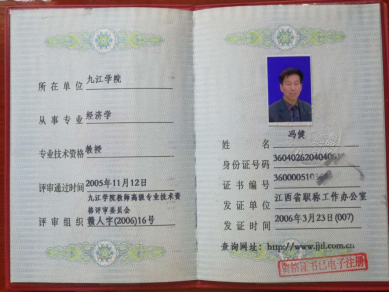 所在单位 九江学院
从事专业 经济学
专业技术资格 教授
评审通过时间 2005年11月12日
九江学院教师高级专业技术资
格评审委员会
评审组织 赣人字(2006)16号
姓名 冯健
身份证号码
证书编号
发证单位 江西省职称工作办公室
发证时间 2006年3月23日(007)
查询网址:http://www.jjtl.com.cn